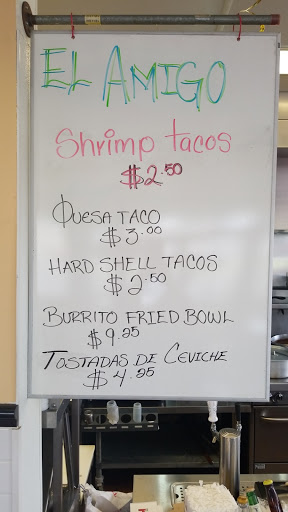 EL AMIGO
Shrimp tacos
$2.50
QUESA TACO
$3.00
HARD SHELL TACOS
$2.50
BURRITO FRIED BOWL
$9.25
TOSTADAS DE CEVICHE
$4.25